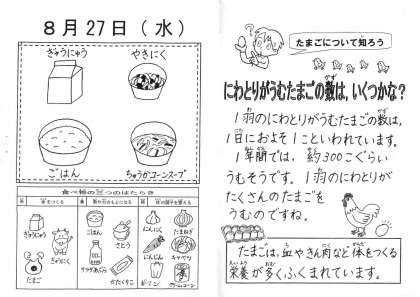 8月27日(水)
ぎゅうにゅう
やきにく
ごはん
ちゅうかコーンスープ
食べ物の三つのはたらき
ぎゅうにゅう
ぎゅうにく
たまご
ごはん
さとう
サラダあぶら
かたくりこ
にんにく
たまねぎ
にんじん
キャベツ
ピーマン
クリームコーン
たまごについて知ろう
にわとりがうむたまごの数は、いくつかな?
1羽のにわとりがうむたまごの数は、
1日におよそ1こといわれています。
1年間では、約300こぐらい
うむそうです。1羽のにわとりが
たくさんのたまごを
うむのですね。
たまごは、血やきん肉など体をつくる
栄養が多くふくまれています。